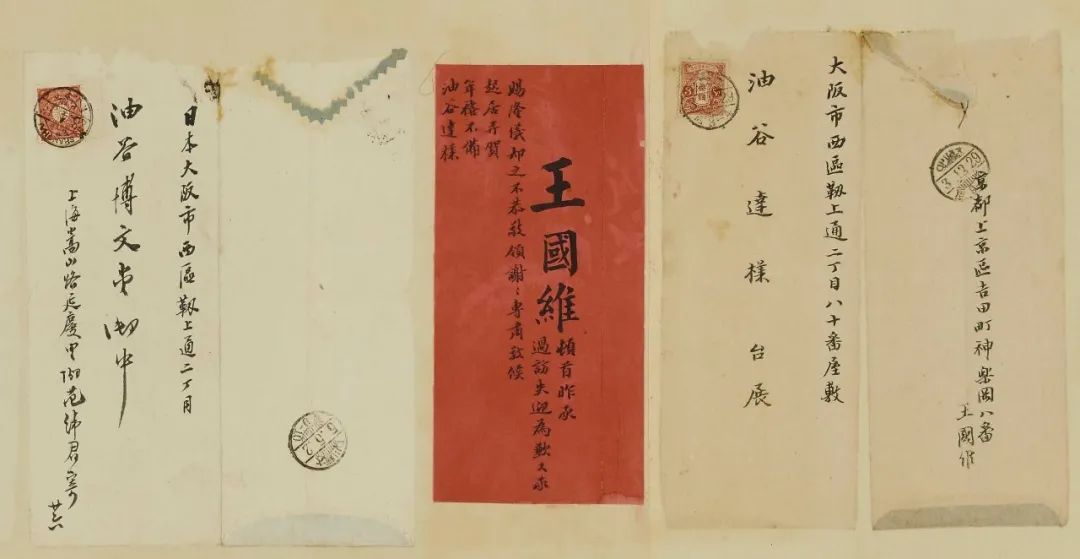 京都上京區吉田町神樂岡八番
王國維
3.12.29
大阪市西區靱上通二丁目八十番屋敷
油谷達樣台展
王國維頓首昨承
過訪失迎為歉又承
賜隆儀却之不恭敬領謝〻專肅敬候
起居并賀
年禧不備
油谷達樣
日本大阪市西區靱上通二丁目
油谷博文堂御中
上海嵩山路延慶里內范緯君寄
廿六